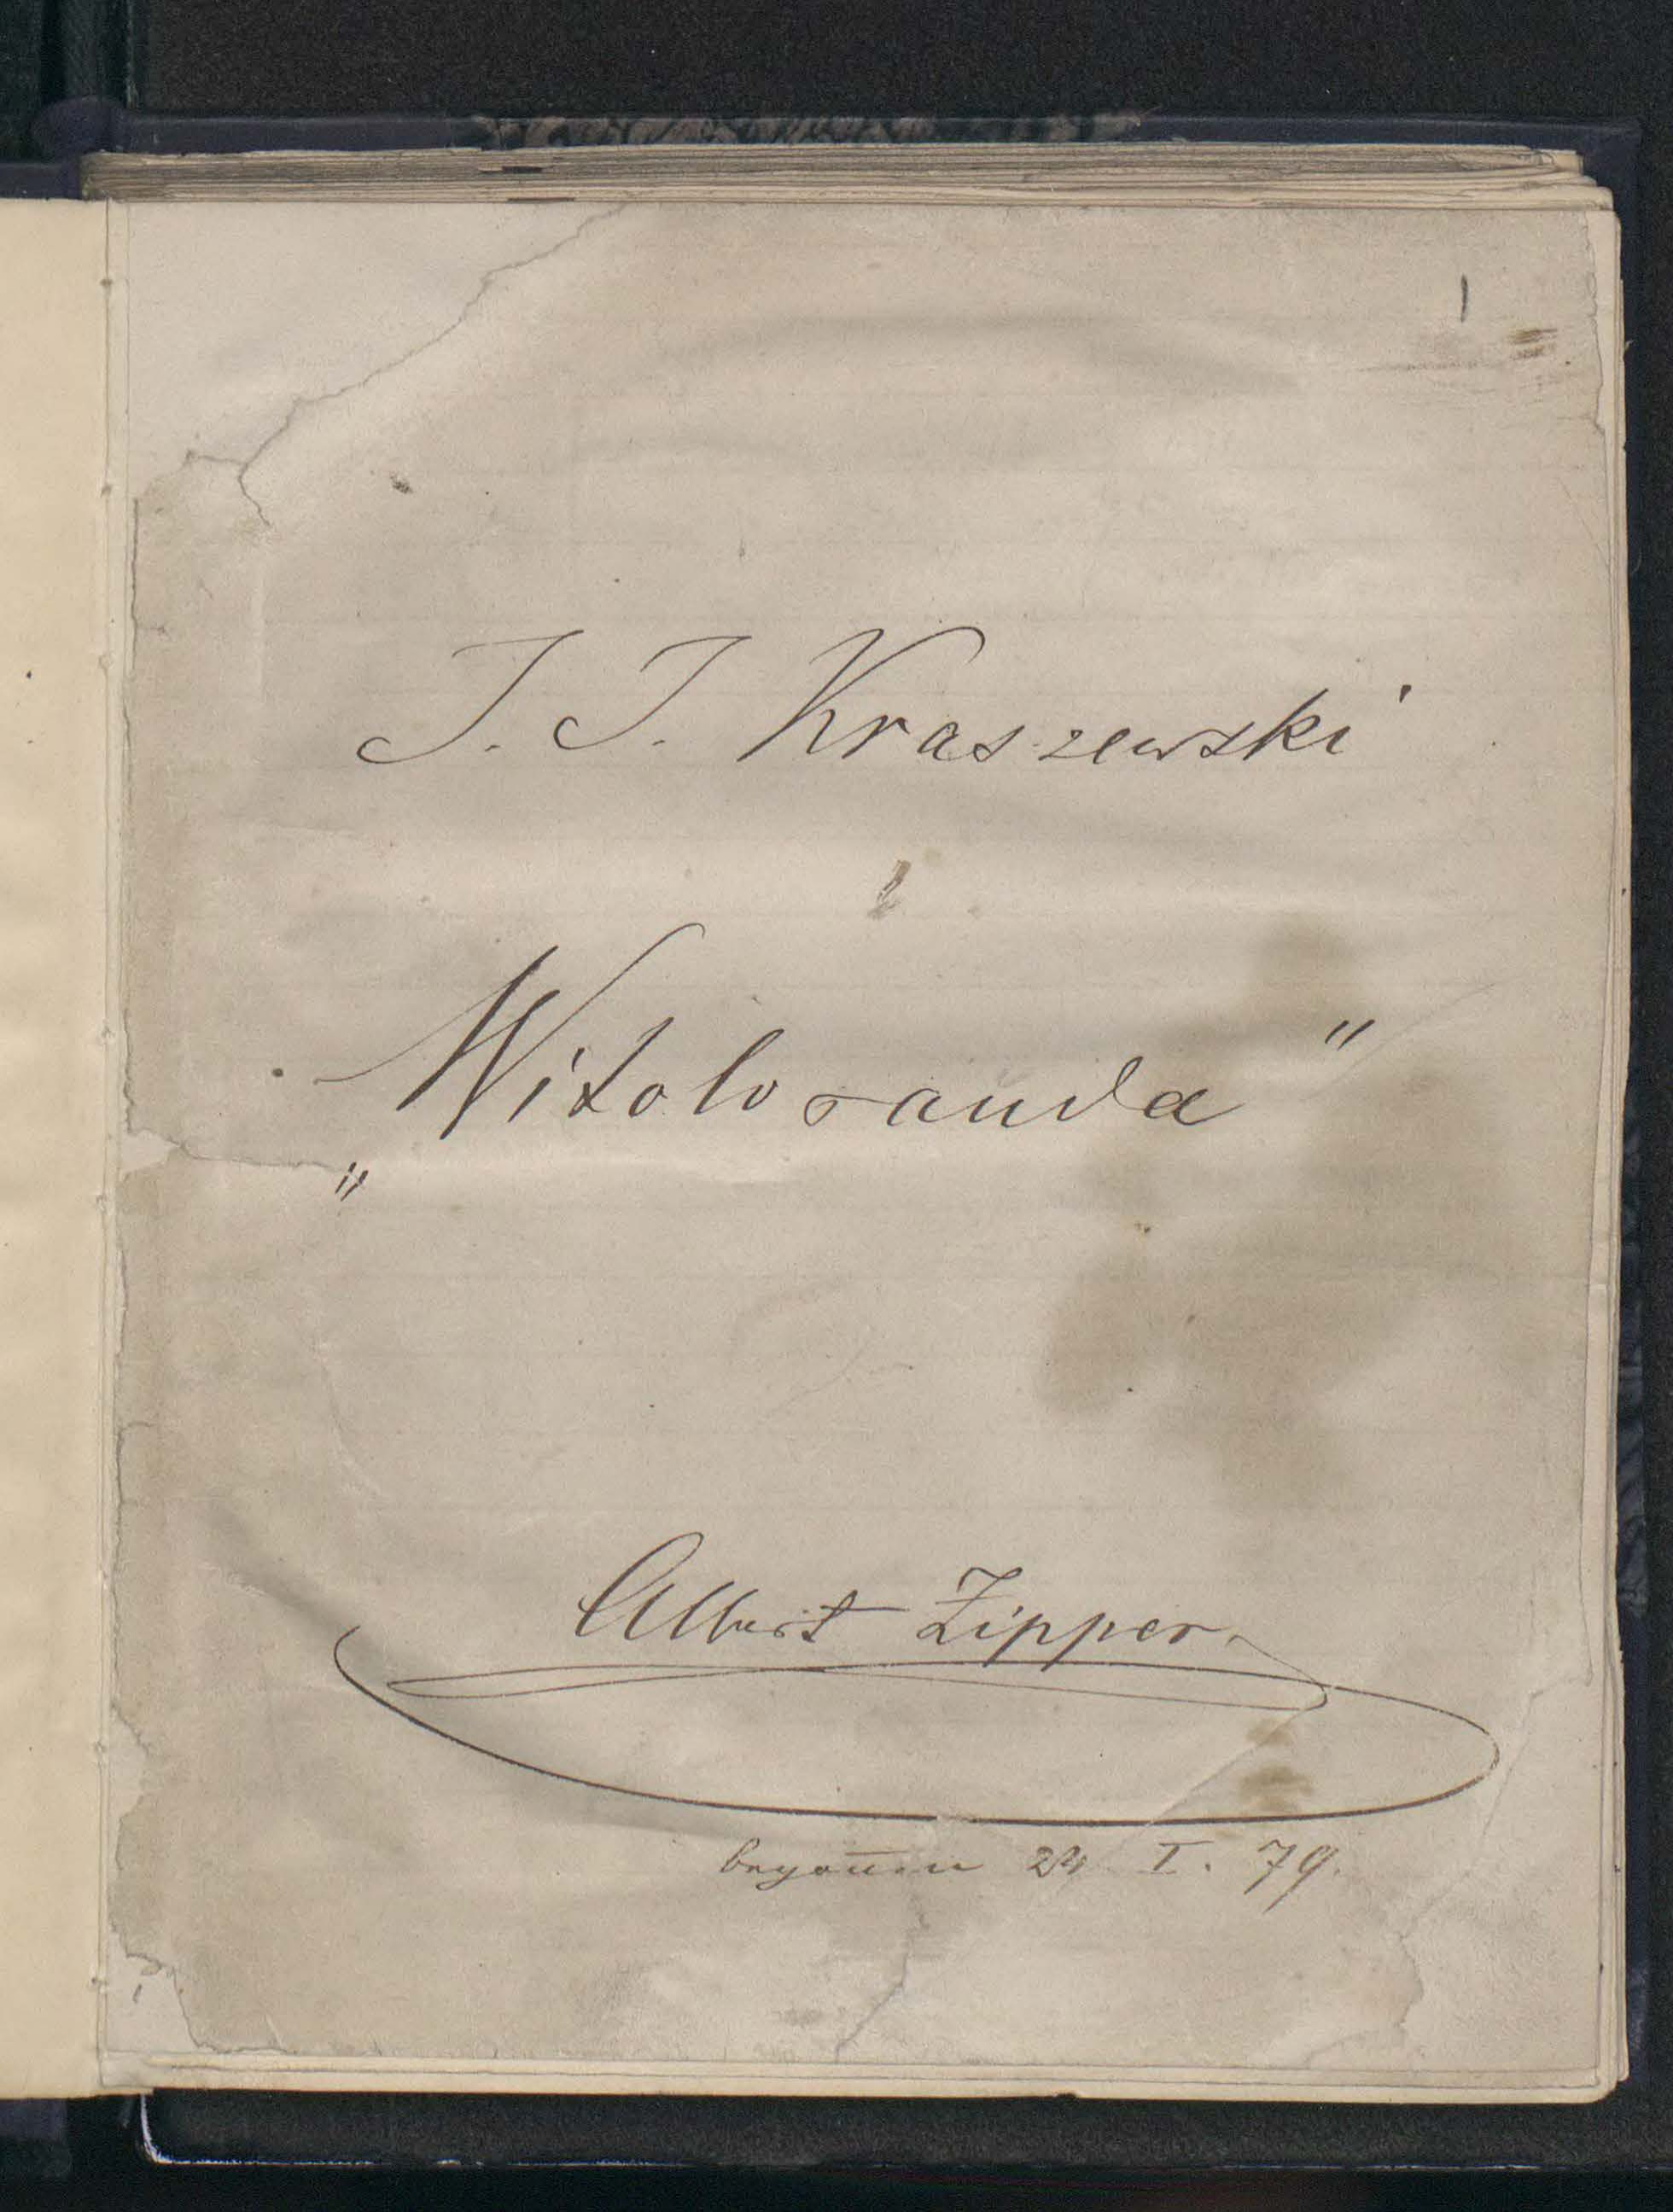 1
J. J. Kraszewski
„Witolorauda"
Albert Zipper
begon̄en 24 I. 79.